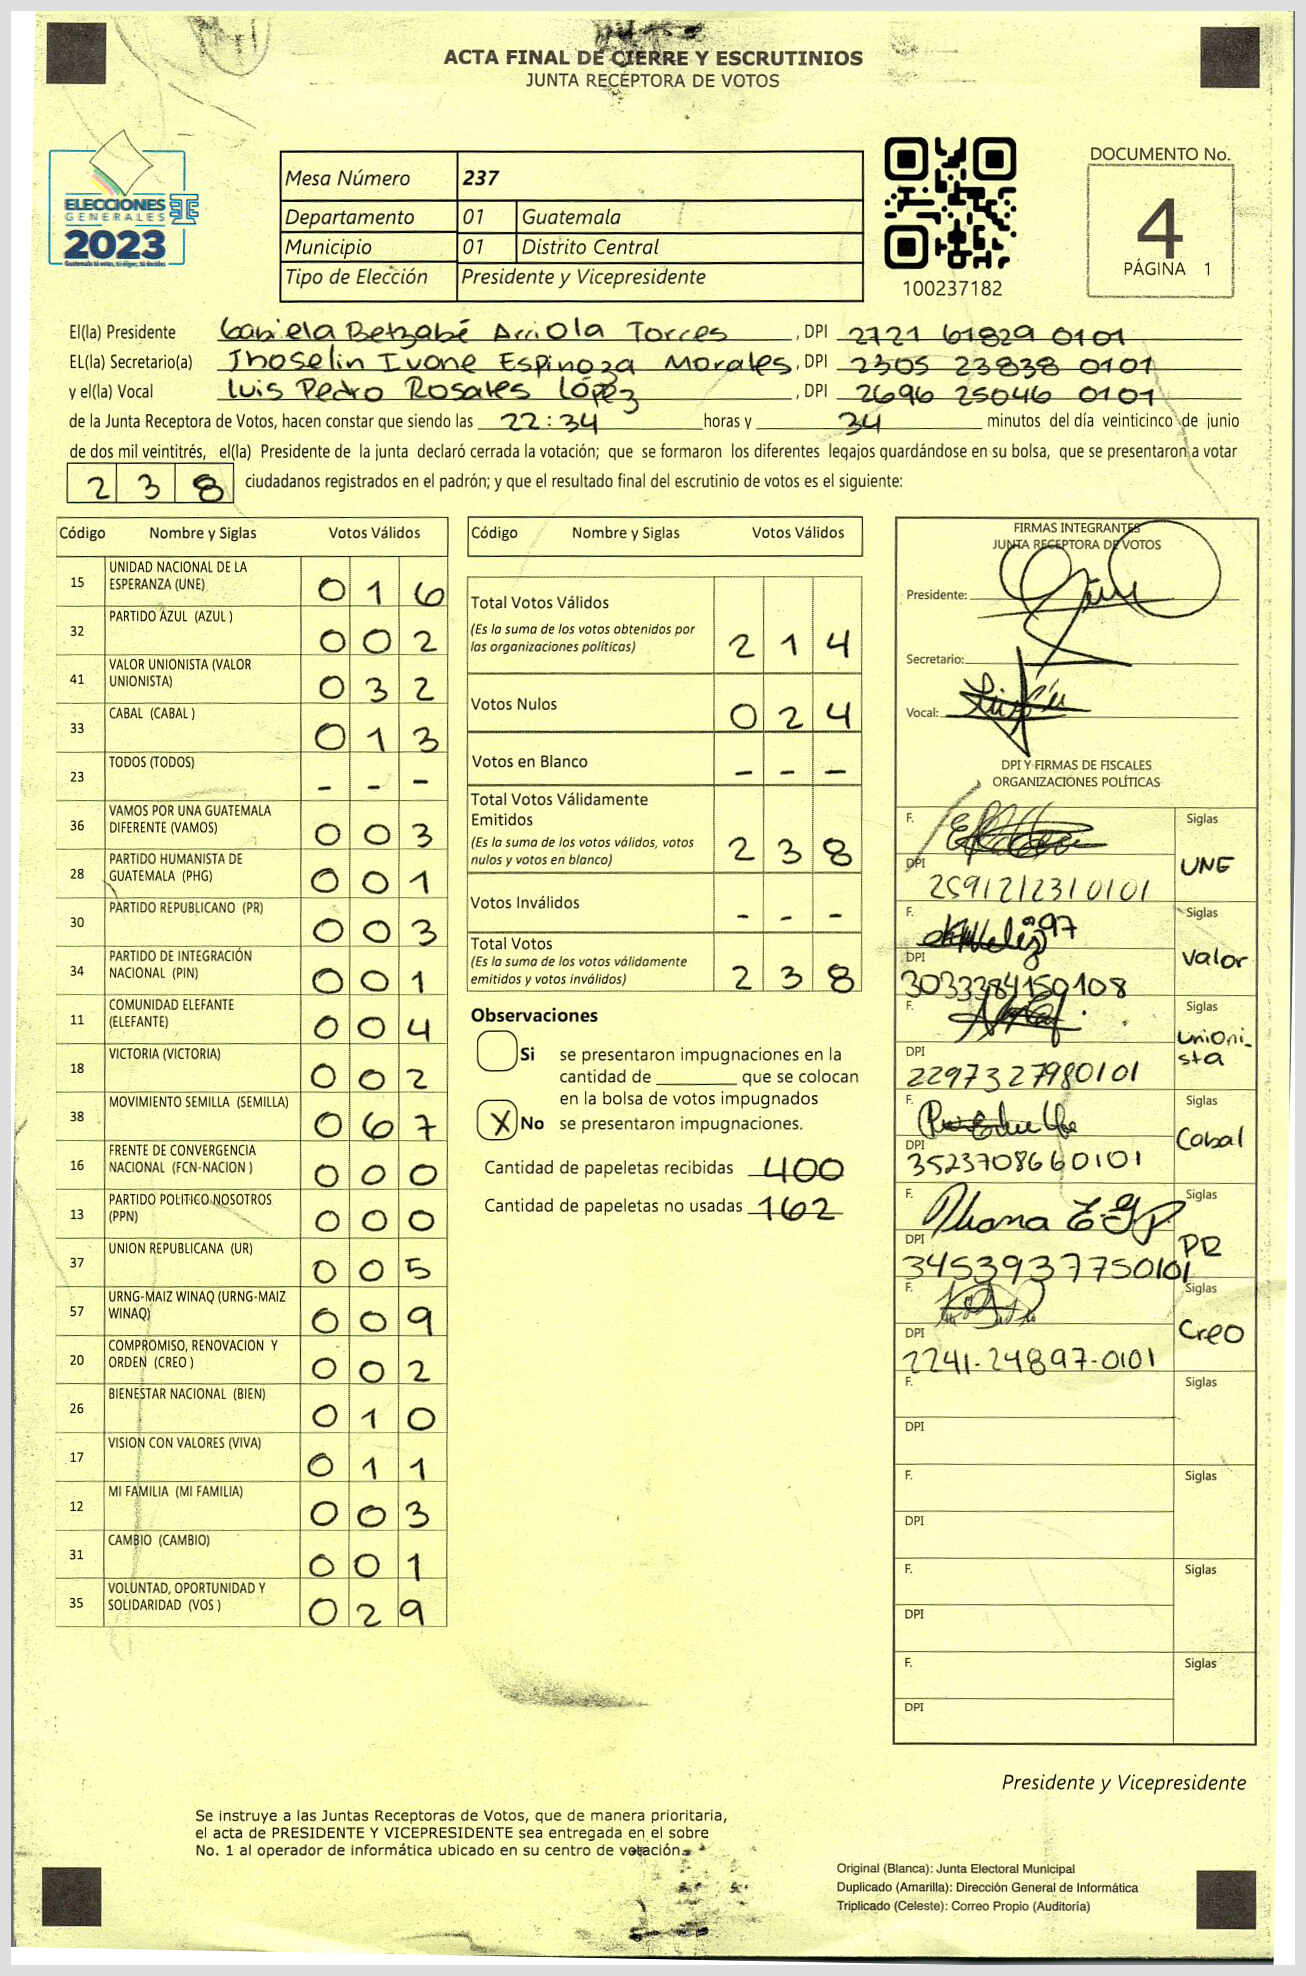 ACTA FINAL DE CIERRE Y ESCRUTINIOS
JUNTA RECEPTORA DE VOTOS
ELECCIONES
GENERALES
2023
Mesa Número 237
Departamento 01 Guatemala
Municipio 01 Distrito Central
Tipo de Elección Presidente y Vicepresidente
100237182
DOCUMENTO No.
4
PÁGINA 1
El(la) Presidente Gabriela Betzabé Arriola Torres, DPI 2721 61829 0101
EL(la) Secretario(a) Jhoselin Ivone Espinoza Morales, DPI 2305 23838 0101
y el(la) Vocal Luis Pedro Rosales López, DPI 2696 25046 0101
de la Junta Receptora de Votos, hacen constar que siendo las 22:34 horas y 34 minutos del día veinticinco de junio
de dos mil veintitrés, el(la) Presidente de la junta declaró cerrada la votación; que se formaron los diferentes legajos guardándose en su bolsa, que se presentaron a votar
238 ciudadanos registrados en el padrón; y que el resultado final del escrutinio de votos es el siguiente:
Código Nombre y Siglas Votos Válidos
15 UNIDAD NACIONAL DE LA
ESPERANZA (UNE) 016
32 PARTIDO AZUL (AZUL ) 002
41 VALOR UNIONISTA (VALOR
UNIONISTA) 032
33 CABAL (CABAL ) 013
23 TODOS (TODOS) - - -
36 VAMOS POR UNA GUATEMALA
DIFERENTE (VAMOS) 003
28 PARTIDO HUMANISTA DE
GUATEMALA (PHG) 001
30 PARTIDO REPUBLICANO (PR) 003
34 PARTIDO DE INTEGRACIÓN
NACIONAL (PIN) 001
11 COMUNIDAD ELEFANTE
(ELEFANTE) 004
18 VICTORIA (VICTORIA) 002
38 MOVIMIENTO SEMILLA (SEMILLA) 067
16 FRENTE DE CONVERGENCIA
NACIONAL (FCN-NACION ) 000
13 PARTIDO POLITICO NOSOTROS
(PPN) 000
37 UNION REPUBLICANA (UR) 005
57 URNG-MAIZ WINAQ (URNG-MAIZ
WINAQ) 009
20 COMPROMISO, RENOVACION Y
ORDEN (CREO ) 002
26 BIENESTAR NACIONAL (BIEN) 010
17 VISION CON VALORES (VIVA) 011
12 MI FAMILIA (MI FAMILIA) 003
31 CAMBIO (CAMBIO) 001
35 VOLUNTAD, OPORTUNIDAD Y
SOLIDARIDAD (VOS ) 029
Código Nombre y Siglas Votos Válidos
Total Votos Válidos
(Es la suma de los votos obtenidos por
las organizaciones políticas) 214
Votos Nulos 024
Votos en Blanco - - -
Total Votos Válidamente
Emitidos
(Es la suma de los votos válidos, votos
nulos y votos en blanco) 238
Votos Inválidos - - -
Total Votos
(Es la suma de los votos válidamente
emitidos y votos inválidos) 238
Observaciones
Si se presentaron impugnaciones en la
cantidad de ________ que se colocan
en la bolsa de votos impugnados
X No se presentaron impugnaciones.
Cantidad de papeletas recibidas 400
Cantidad de papeletas no usadas 162
FIRMAS INTEGRANTES
JUNTA RECEPTORA DE VOTOS
Presidente:
Secretario:
Vocal:
DPI Y FIRMAS DE FISCALES
ORGANIZACIONES POLÍTICAS
F. Siglas
UNE
DPI
2591212310101
F. Siglas
Valor
DPI
3033384150108
F. Siglas
Unioni-
sta
DPI
2297327980101
F. Siglas
Cabal
DPI
3523708660101
F. Siglas
PR
DPI
3453937750101
F. Siglas
Creo
DPI
2241-24897-0101
F. Siglas
DPI
F. Siglas
DPI
F. Siglas
DPI
F. Siglas
DPI
Presidente y Vicepresidente
Se instruye a las Juntas Receptoras de Votos, que de manera prioritaria,
el acta de PRESIDENTE Y VICEPRESIDENTE sea entregada en el sobre
No. 1 al operador de informática ubicado en su centro de votación.
Original (Blanca): Junta Electoral Municipal
Duplicado (Amarilla): Dirección General de Informática
Triplicado (Celeste): Correo Propio (Auditoría)